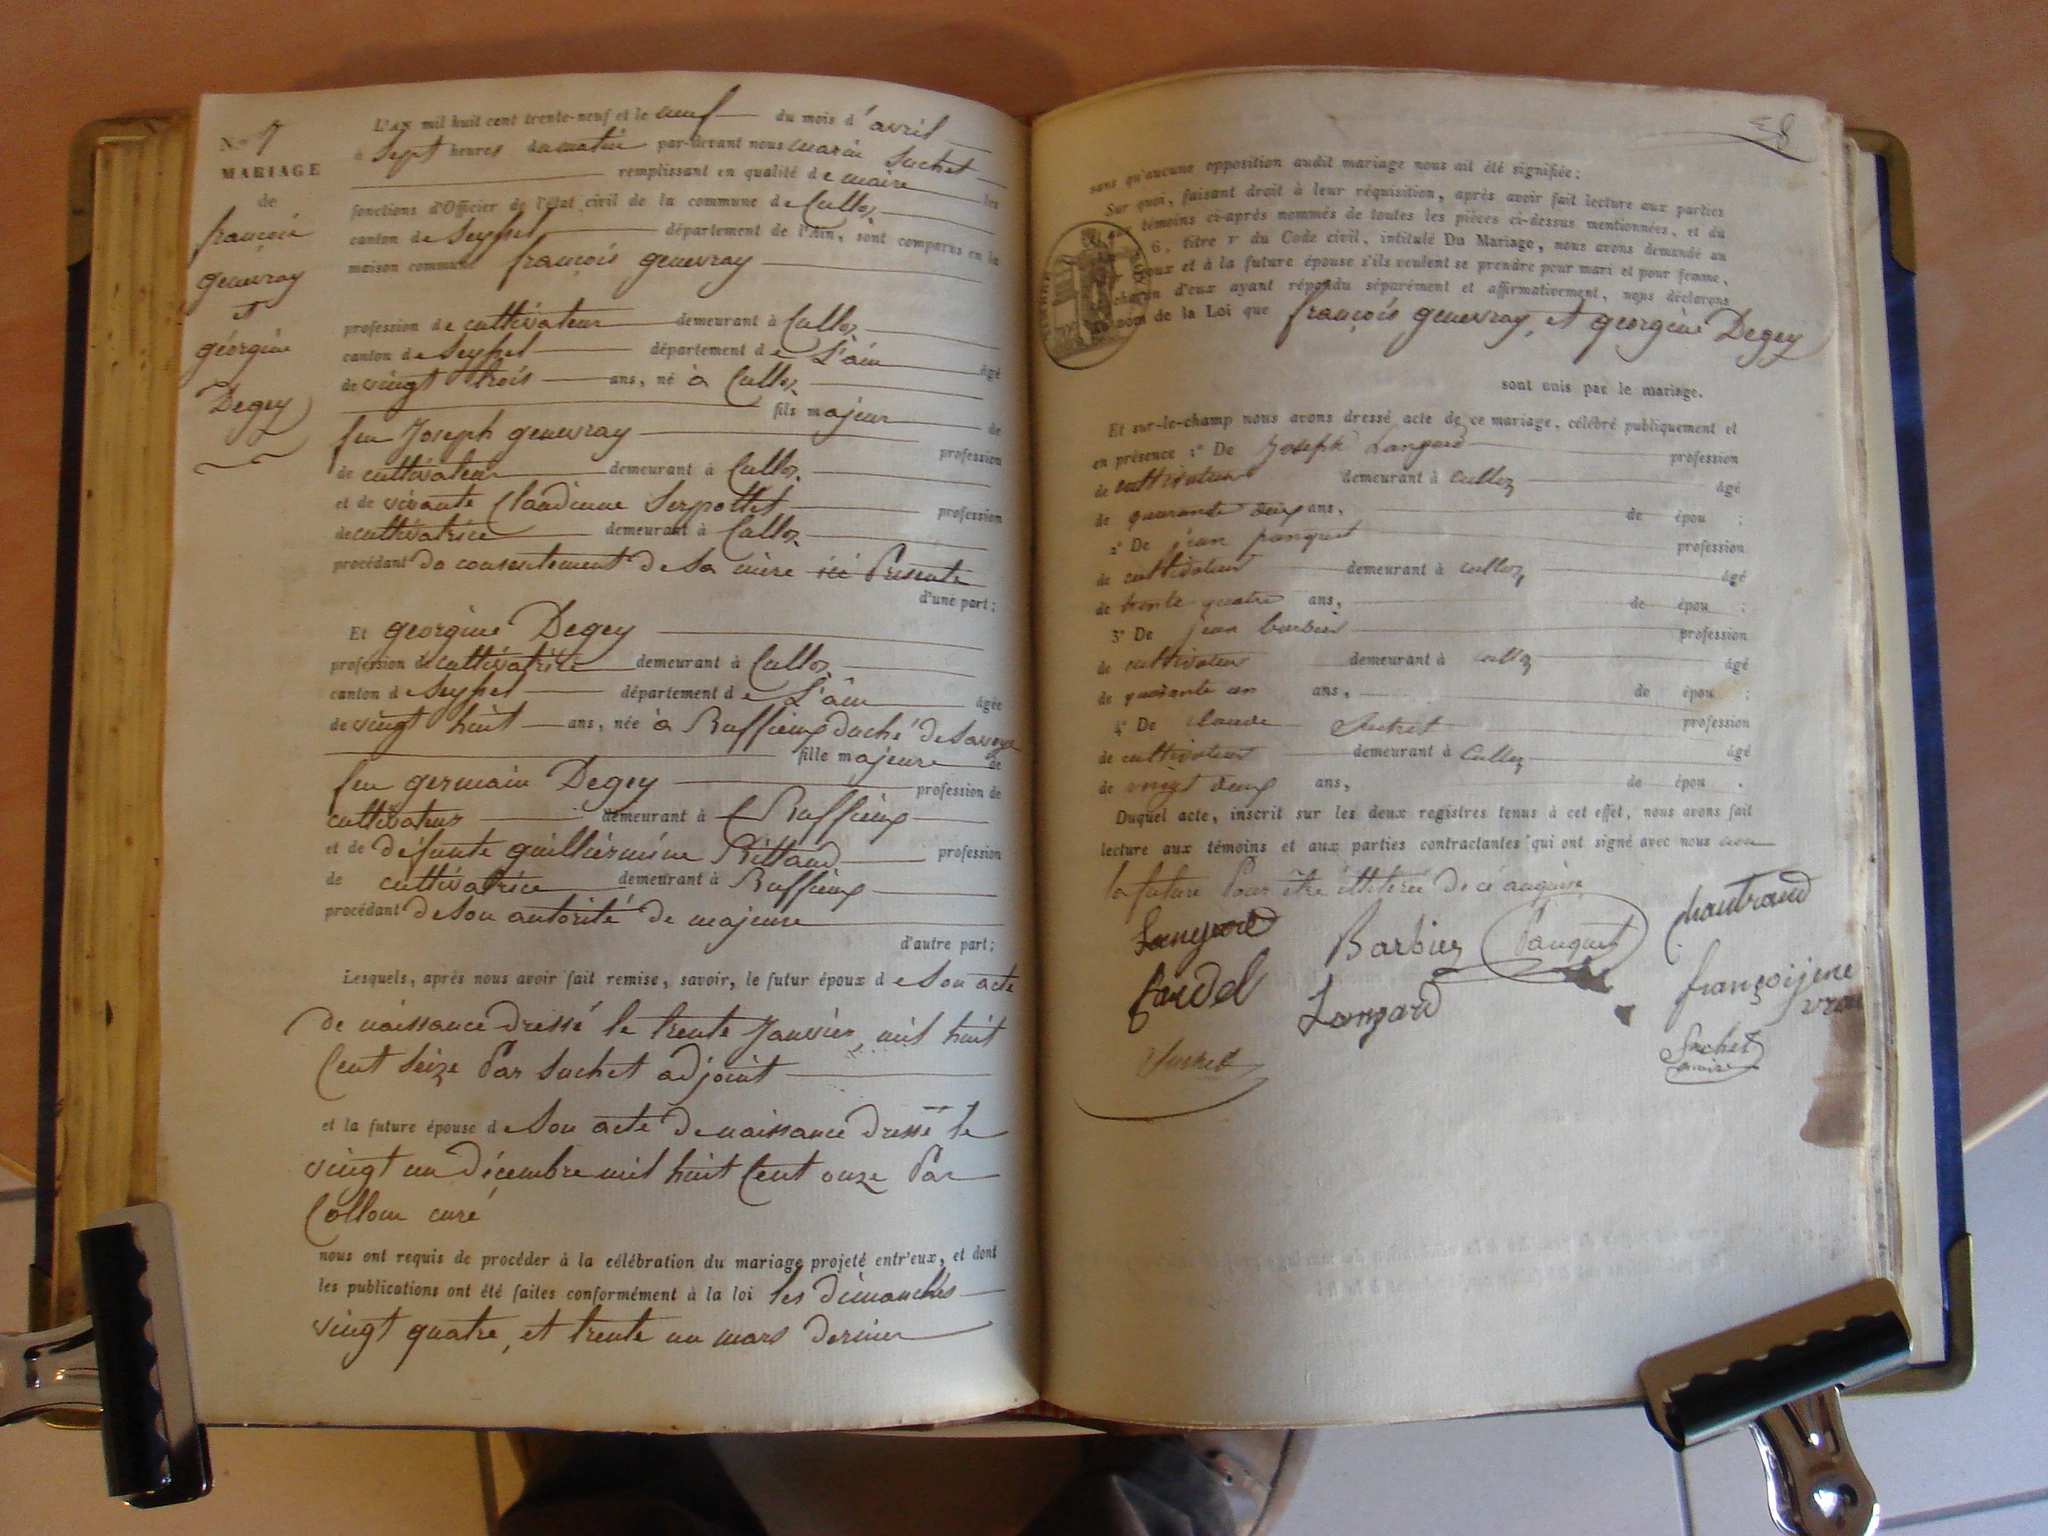 No 7
MARIAGE
de
françois
genevray
et
géorgine
Degey
L'AN mil huit cent trente-neuf et le neuf du mois d'avril
à Sept heures du matin par-devant nous marin Suchet
remplissant en qualité de maire les
fonctions d'Officier de l'état civil de la commune de Culloz
canton de Seyssel département de l'Ain, sont comparus en la
maison commune françois genevray
profession de cultivateur demeurant à Culloz
canton de Seyssel département de L'ain âgé
de vingt trois ans, né à Culloz
fils majeur de
feu Joseph genevray profession
de cultivateur demeurant à Culloz
et de vivante Claudienne Serpollet profession
de cultivatrice demeurant à Culloz
procédant du consentement de Sa mère ici Présente
d'une part;
Et georgine Degey
profession de cultivatrice demeurant à Culloz
canton de Seyssel département de L'ain âgée
de vingt huit ans, née à Ruffieux duché de Savoye
fille majeure de
feu germain Degey profession de
cultivateur demeurant à Ruffieux
et de défunte guilliermine Rittaud profession
de cultivatrice demeurant à Ruffieux
procédant de son autorité de majeure
d'autre part;
Lesquels, après nous avoir fait remise, savoir, le futur époux de Son acte
de naissance dressé le trente Janvier mil huit
Cent Seize Par Suchet adjoint
et la future épouse de Son acte de naissance dressé le
vingt un décembre mil huit Cent onze Par
Collour curé
nous ont requis de procéder à la célébration du mariage projeté entr'eux, et dont
les publications ont été faites conformément à la loi les dimanches
vingt quatre, et trente un mars dernier
38
sans qu'aucune opposition audit mariage nous ait été signifiée;
Sur quoi, faisant droit à leur réquisition, après avoir fait lecture aux parties
aux témoins ci-après nommés de toutes les pièces ci-dessus mentionnées, et du
6, titre v du Code civil, intitulé Du Mariage, nous avons demandé au
époux et à la future épouse s'ils veulent se prendre pour mari et pour femme,
chacun d'eux ayant répondu séparément et affirmativement, nous déclarons
au nom de la Loi que françois genevray, et georgine Degey
sont unis par le mariage.
Et sur-le-champ nous avons dressé acte de ce mariage, célébré publiquement et
en présence 1° De Joseph Langard profession
de cultivateur demeurant à culloz âgé
de quarante deux ans, de épou ;
2° De jean panquet profession
de cultivateur demeurant à culloz âgé
de trente quatre ans, de épou ;
3° De jean barbier profession
de cultivateur demeurant à culloz âgé
de quarante un ans, de épou ;
4° De claude Suchet profession
de cultivateur demeurant à Culloz âgé
de vingt deux ans, de épou .
Duquel acte, inscrit sur les deux registres tenus à cet effet, nous avons fait
lecture aux témoins et aux parties contractantes qui ont signé avec nous non
la future Pour être illiterée de ce enquise
Langard Barbier Panquet chautraud
Cardel Langard françoijene
vrai
Suchet Suchet
maire